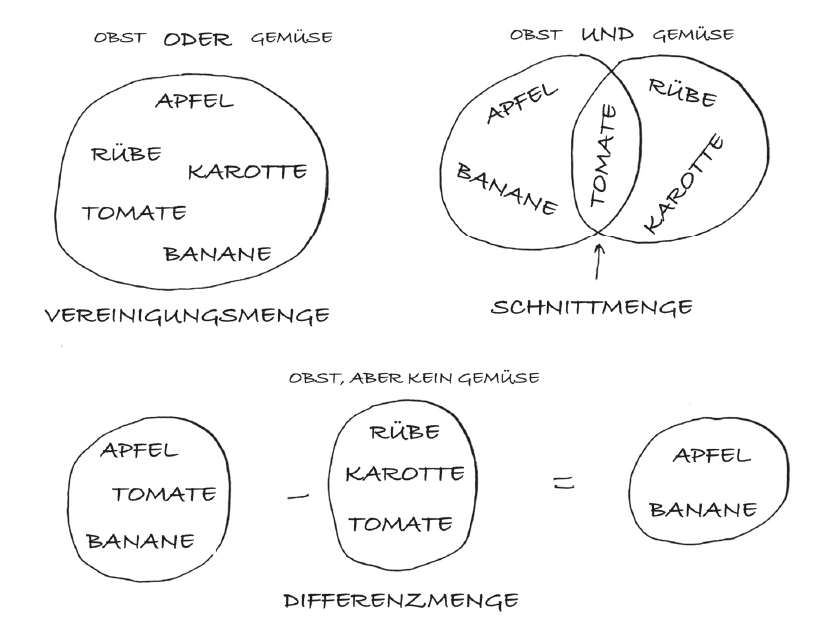 OBST ODER GEMÜSE
APFEL
RÜBE
KAROTTE
TOMATE
BANANE
VEREINIGUNGSMENGE
OBST UND GEMÜSE
APFEL
BANANE
TOMATE
RÜBE
KAROTTE
SCHNITTMENGE
OBST, ABER KEIN GEMÜSE
APFEL
TOMATE
BANANE
–
RÜBE
KAROTTE
TOMATE
=
APFEL
BANANE
DIFFERENZMENGE